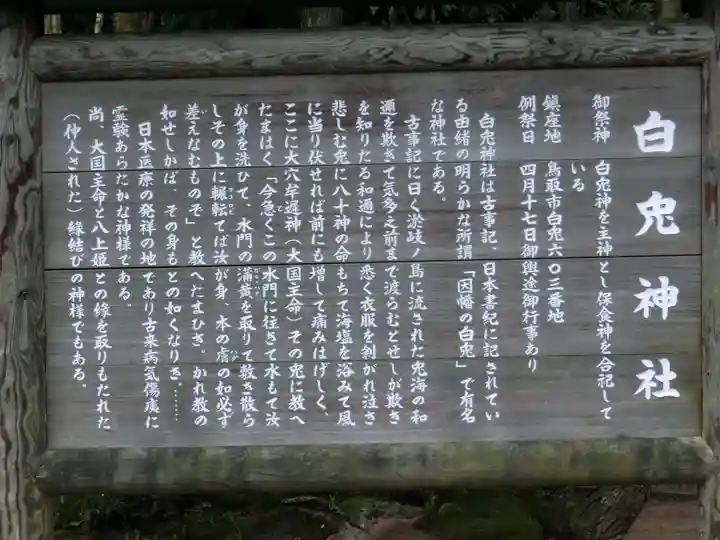 白兎神社
御祭神　白兎神を主神とし保食神を合祀して
いる
鎮座地　鳥取市白兎六〇三番地
例祭日　四月十七日御輿途御行事あり
白兎神社は古事記、日本書紀に記されてい
る由緒の明らかな所謂「因幡の白兎」で有名
な神社である。
古事記に曰く淤岐ノ島に流された兎海の和
邇を欺きて気多之前まで渡らむとせしが欺き
を知りたる和邇により悉く衣服を剥がれ泣き
悲しむ兎に八十神の命もちて海塩を浴みて風
に当り伏せれば前にも増して痛みはげしく、
ここに大穴牟遅神（大国主命）その兎に教へ
たまはく「今急くこの水門に往きて水もて汝
が身を洗ひて、水門の蒲黄を取りて敷き散ら
しその上に輾転てば汝が身、本の膚の如必ず
差えなむものぞ」と教へたまひき。かれ教の
如せしかば、その身もとの如くなりき。……
日本医療の発祥の地であり古来病気傷痍に
霊験あらたかな神様である。
尚、大国主命と八上姫との縁を取りもたれた
（仲人された）縁結びの神様でもある。